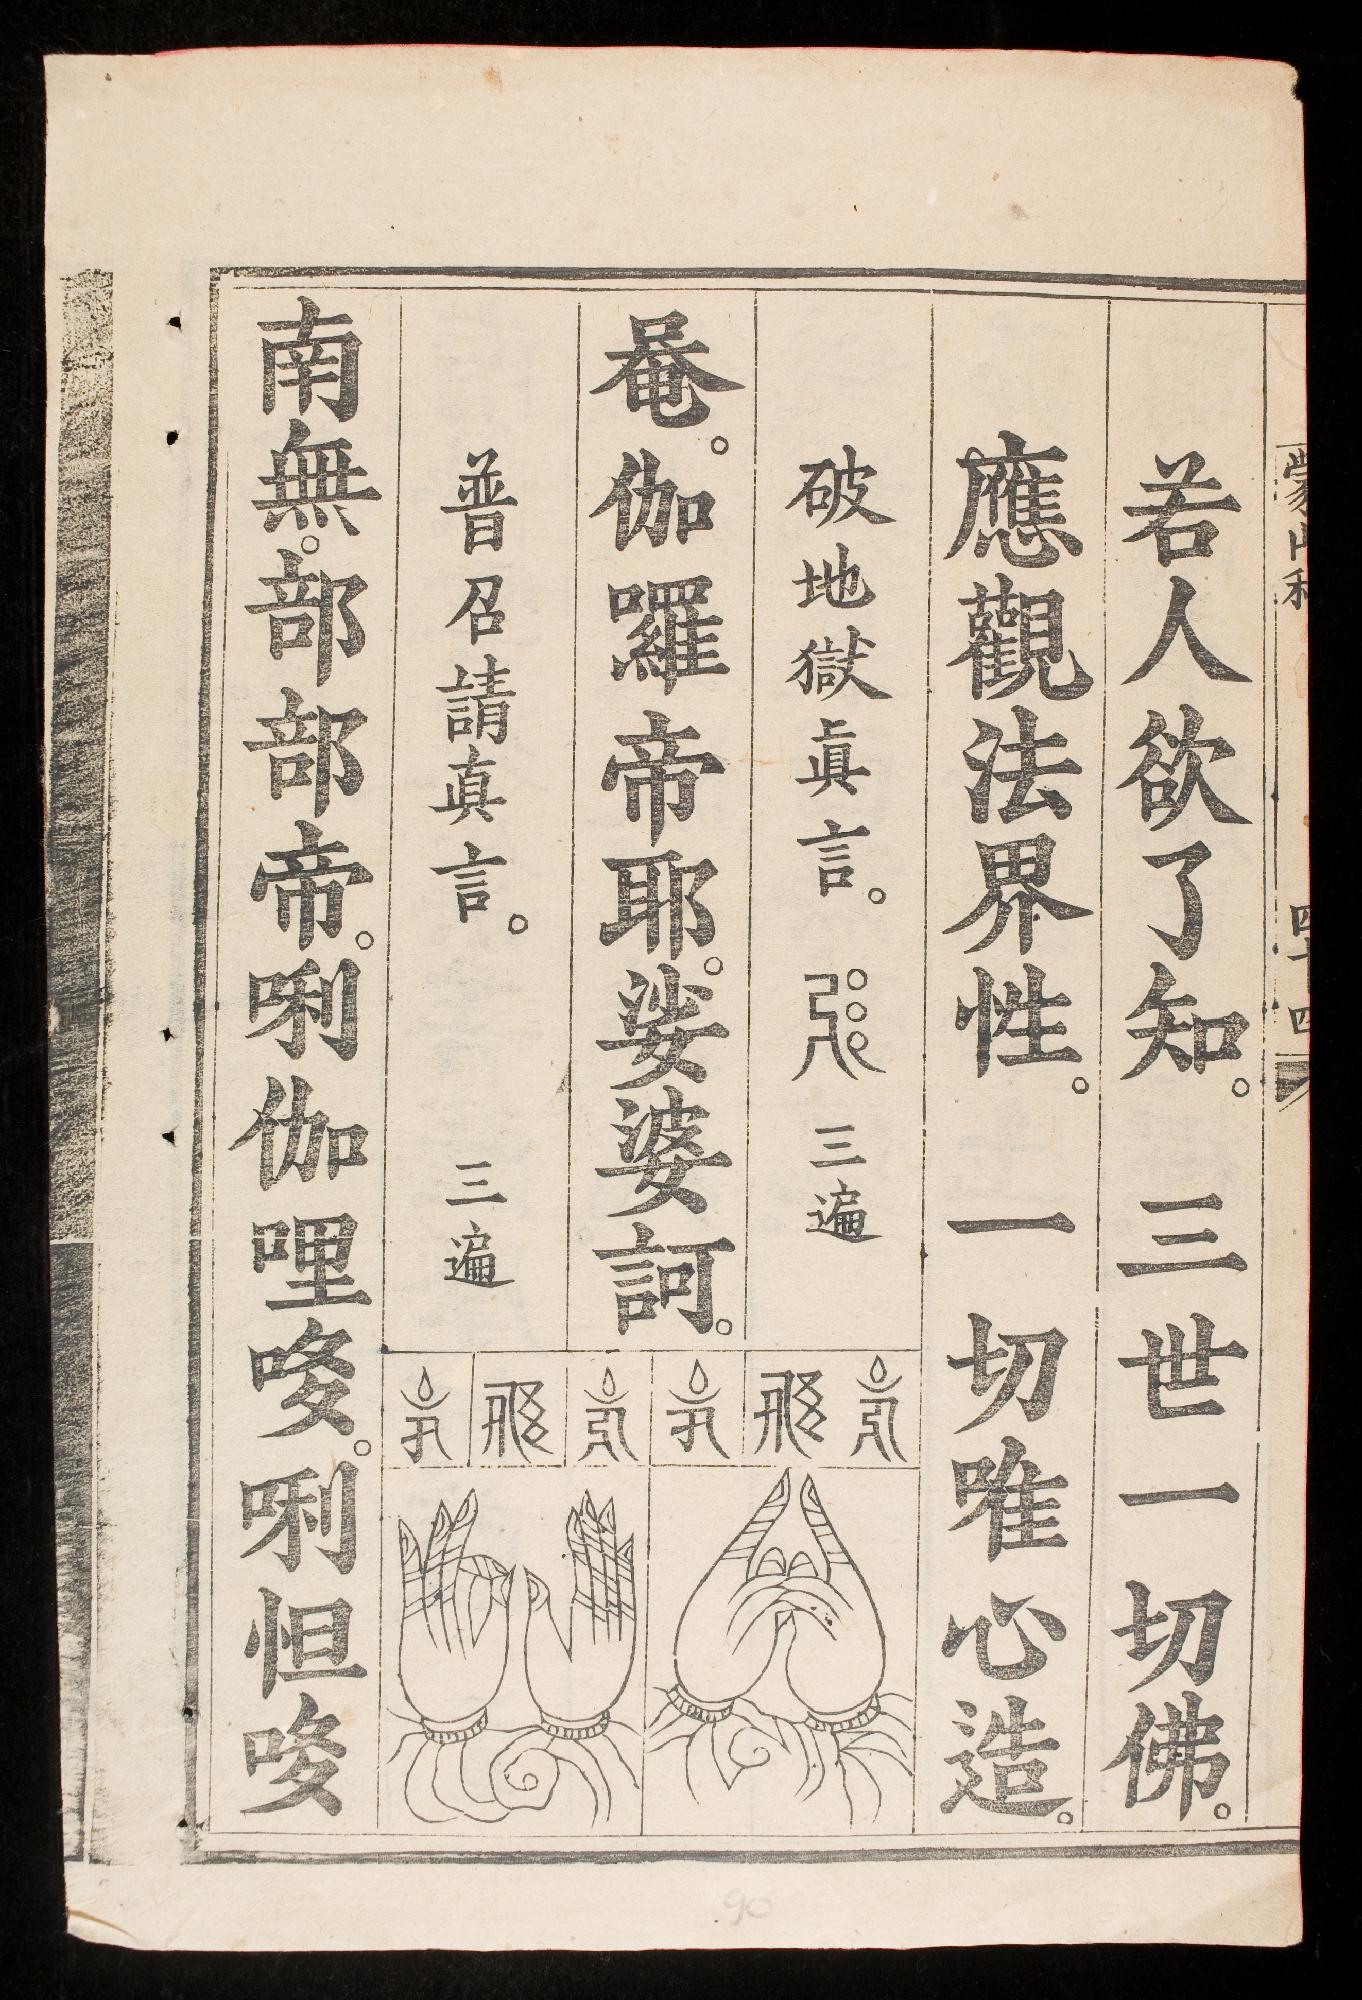 若人欲了知。三世一切佛。
應觀法界性。一切唯心造。
破地獄眞言。三遍
唵。伽囉帝耶。娑婆訶。
普召請真言。三遍
南無。部部帝。唎伽哩哆。唎怛哆
四十四
90